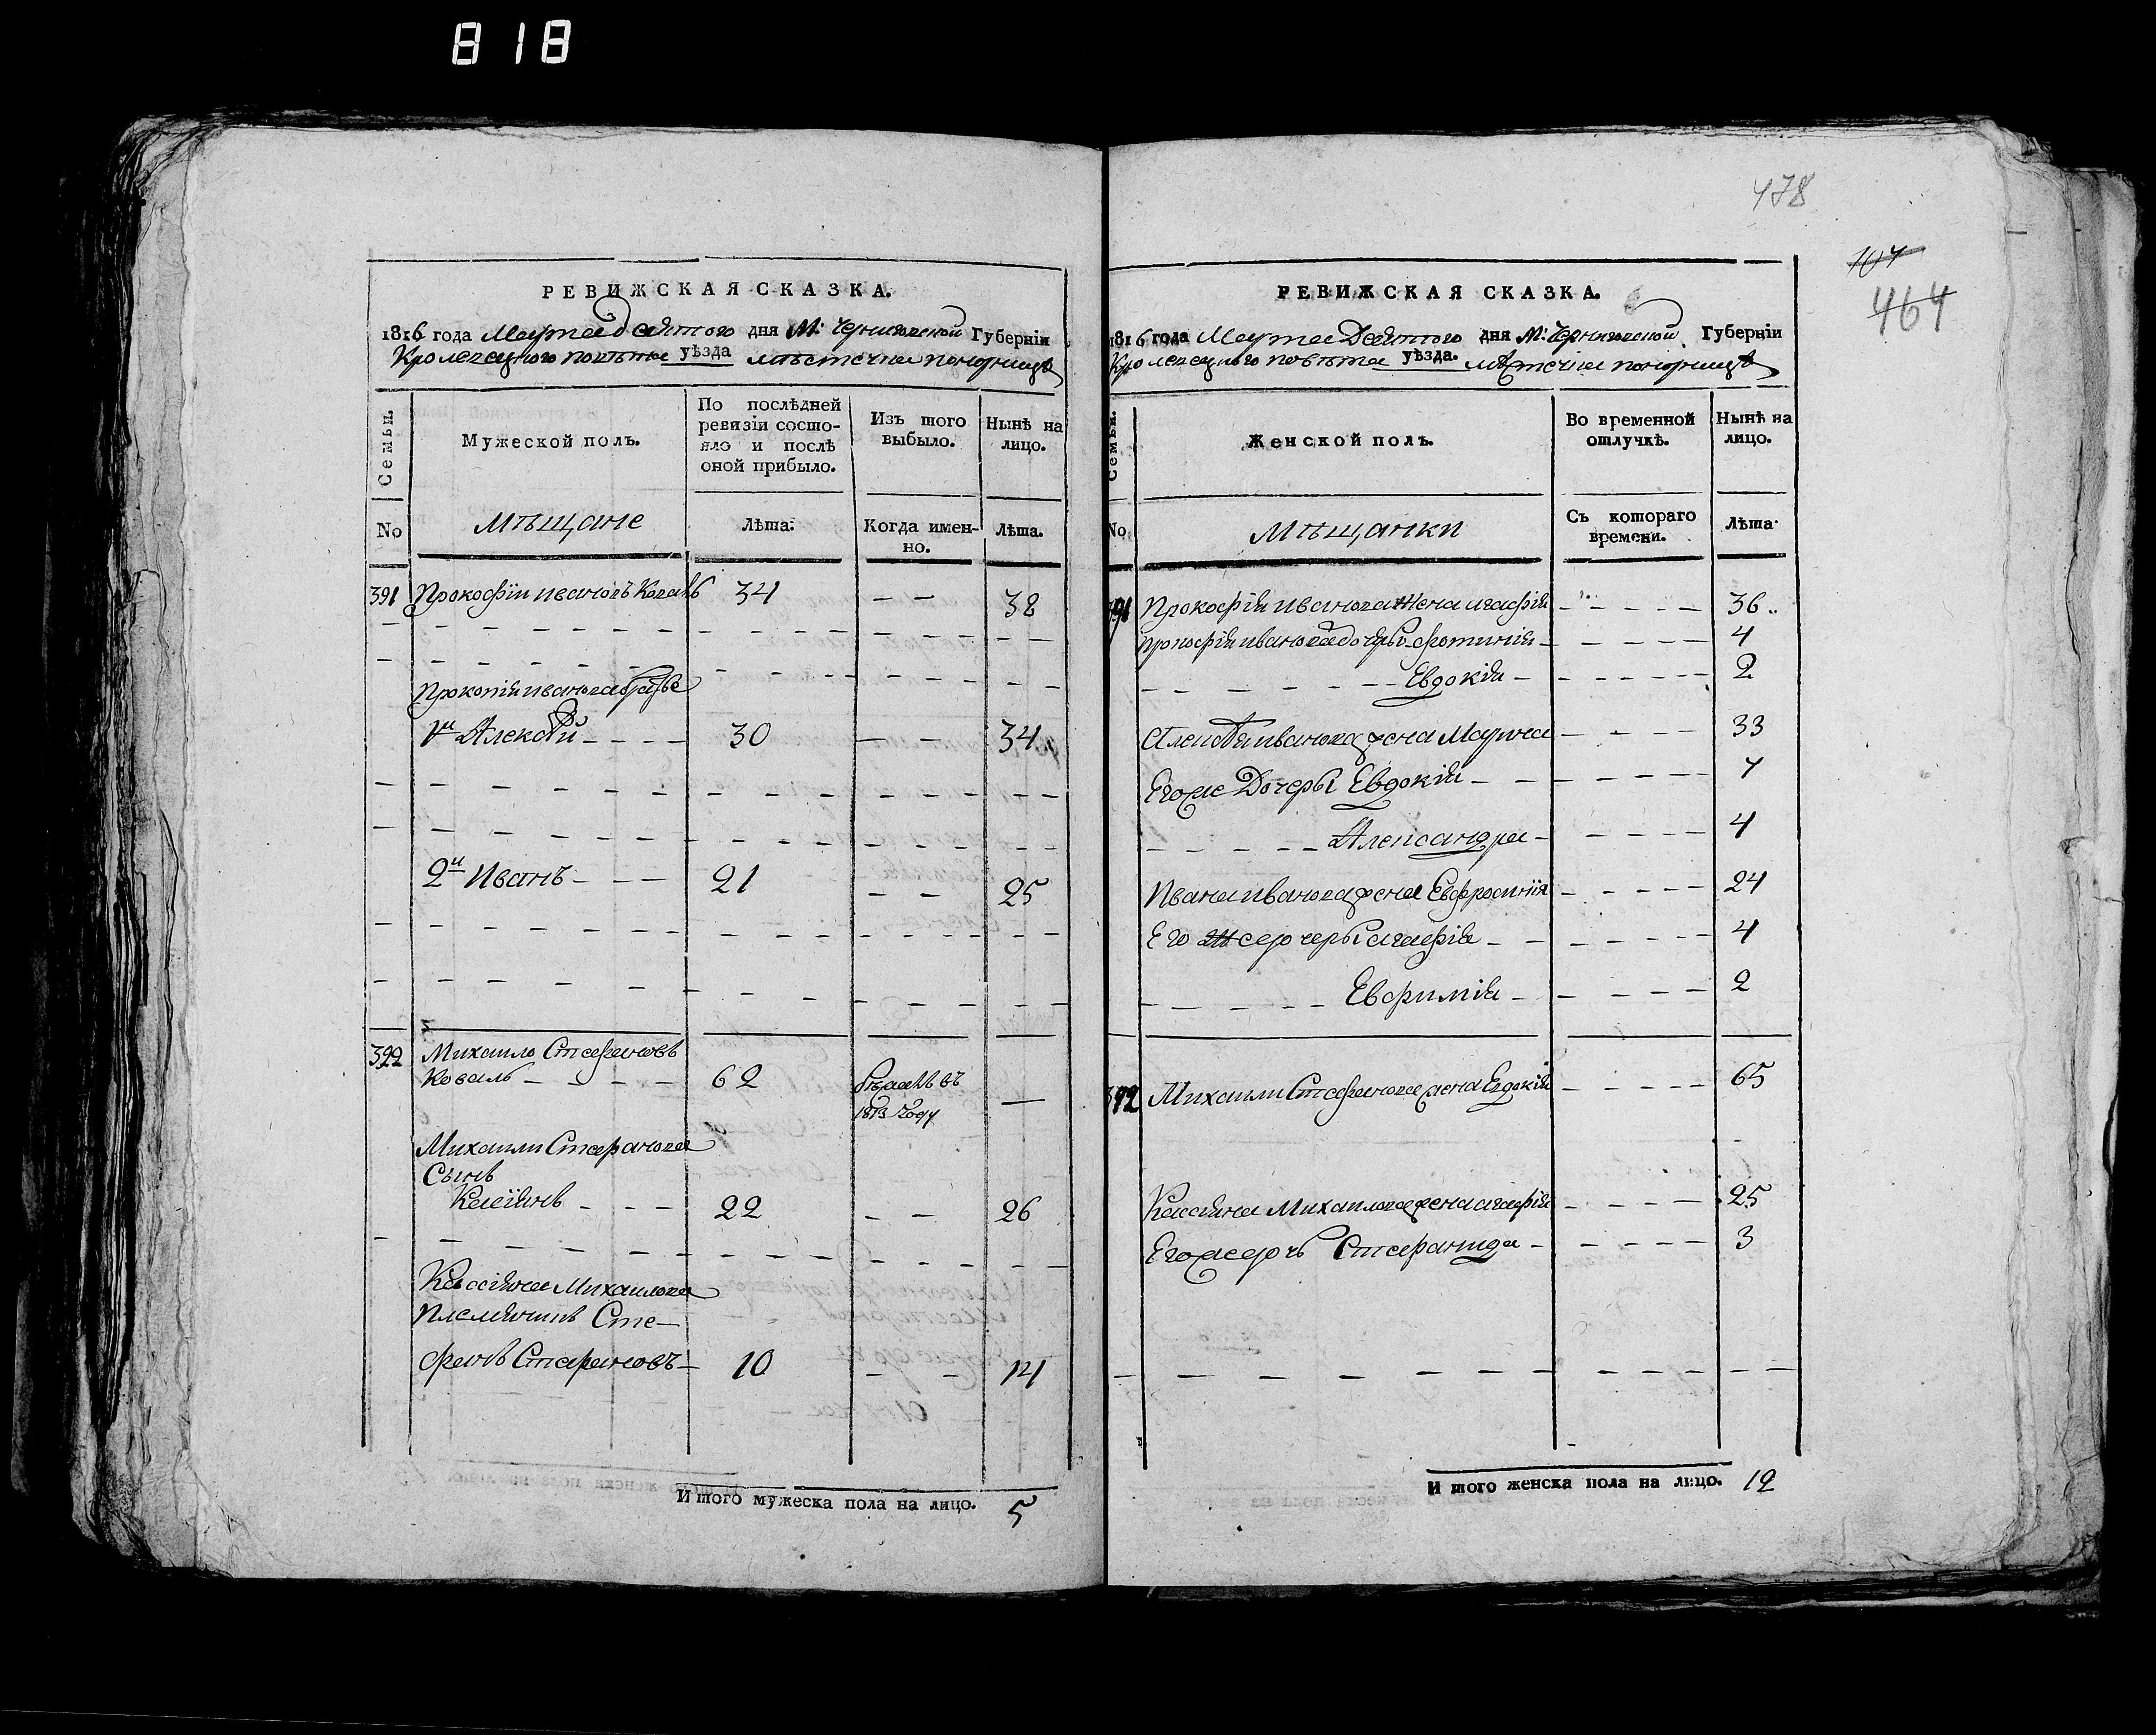 818
478
104
464
РЕВИЖСКАЯ СКАЗКА.
1816 года Марта десятого дня М: Черниговской Губерніи
Кролевецкого повѣта уѣзда мѣстечка понорницѣ
Семьи.
Мужеской полъ.
По послѣдней ревизіи состояло и послѣ оной прибыло.
Изъ того выбыло.
Нынѣ на лицо.
No
Мѣщане
Лѣта.
Когда именно.
Лѣта.
391 Прокофіи ивановъ Коваль 34 — — 38
Прокопія иванова братья
1й Алексѣй 30 — — 34
2й Иванъ 21 — — 25
392 Михаило Стефановъ
Коваль 62 въ
1813 году —
Михаили Стефанова
Сынъ
Касіянъ 22 — — 26
Кассіяна Михаилова
племянникъ Сте—
фанъ Стефановъ 10 — — 14
И того мужеска пола на лицо. 5
РЕВИЖСКАЯ СКАЗКА.
1816 года Марта Десятого дня М: Черниговской Губерніи
Кролевецкого повѣта уѣзда. мѣстечка понорницѣ
Семьи.
Женской полъ.
Во временной отлучкѣ.
Нынѣ на лицо.
No
Мѣщанки
Съ котораго времени.
Лѣта
391 Прокофія иванова Жена агафія 36
Прокофія иванова дочеры фотинія 4
Евдокія 2
Алексѣя иванова жена Марина 33
Егоже Дочеры Евдокія 7
Александра 4
Ивана иванова жена Евфросинія 24
Его же дочеры агафія 4
Евфимія 2
392 Михаили Стефанова жена Евдокія 65
Кассіяна Михаилова жена агафія 25
Егоже дочь Стефанида 3
И того женска пола на лицо. 12